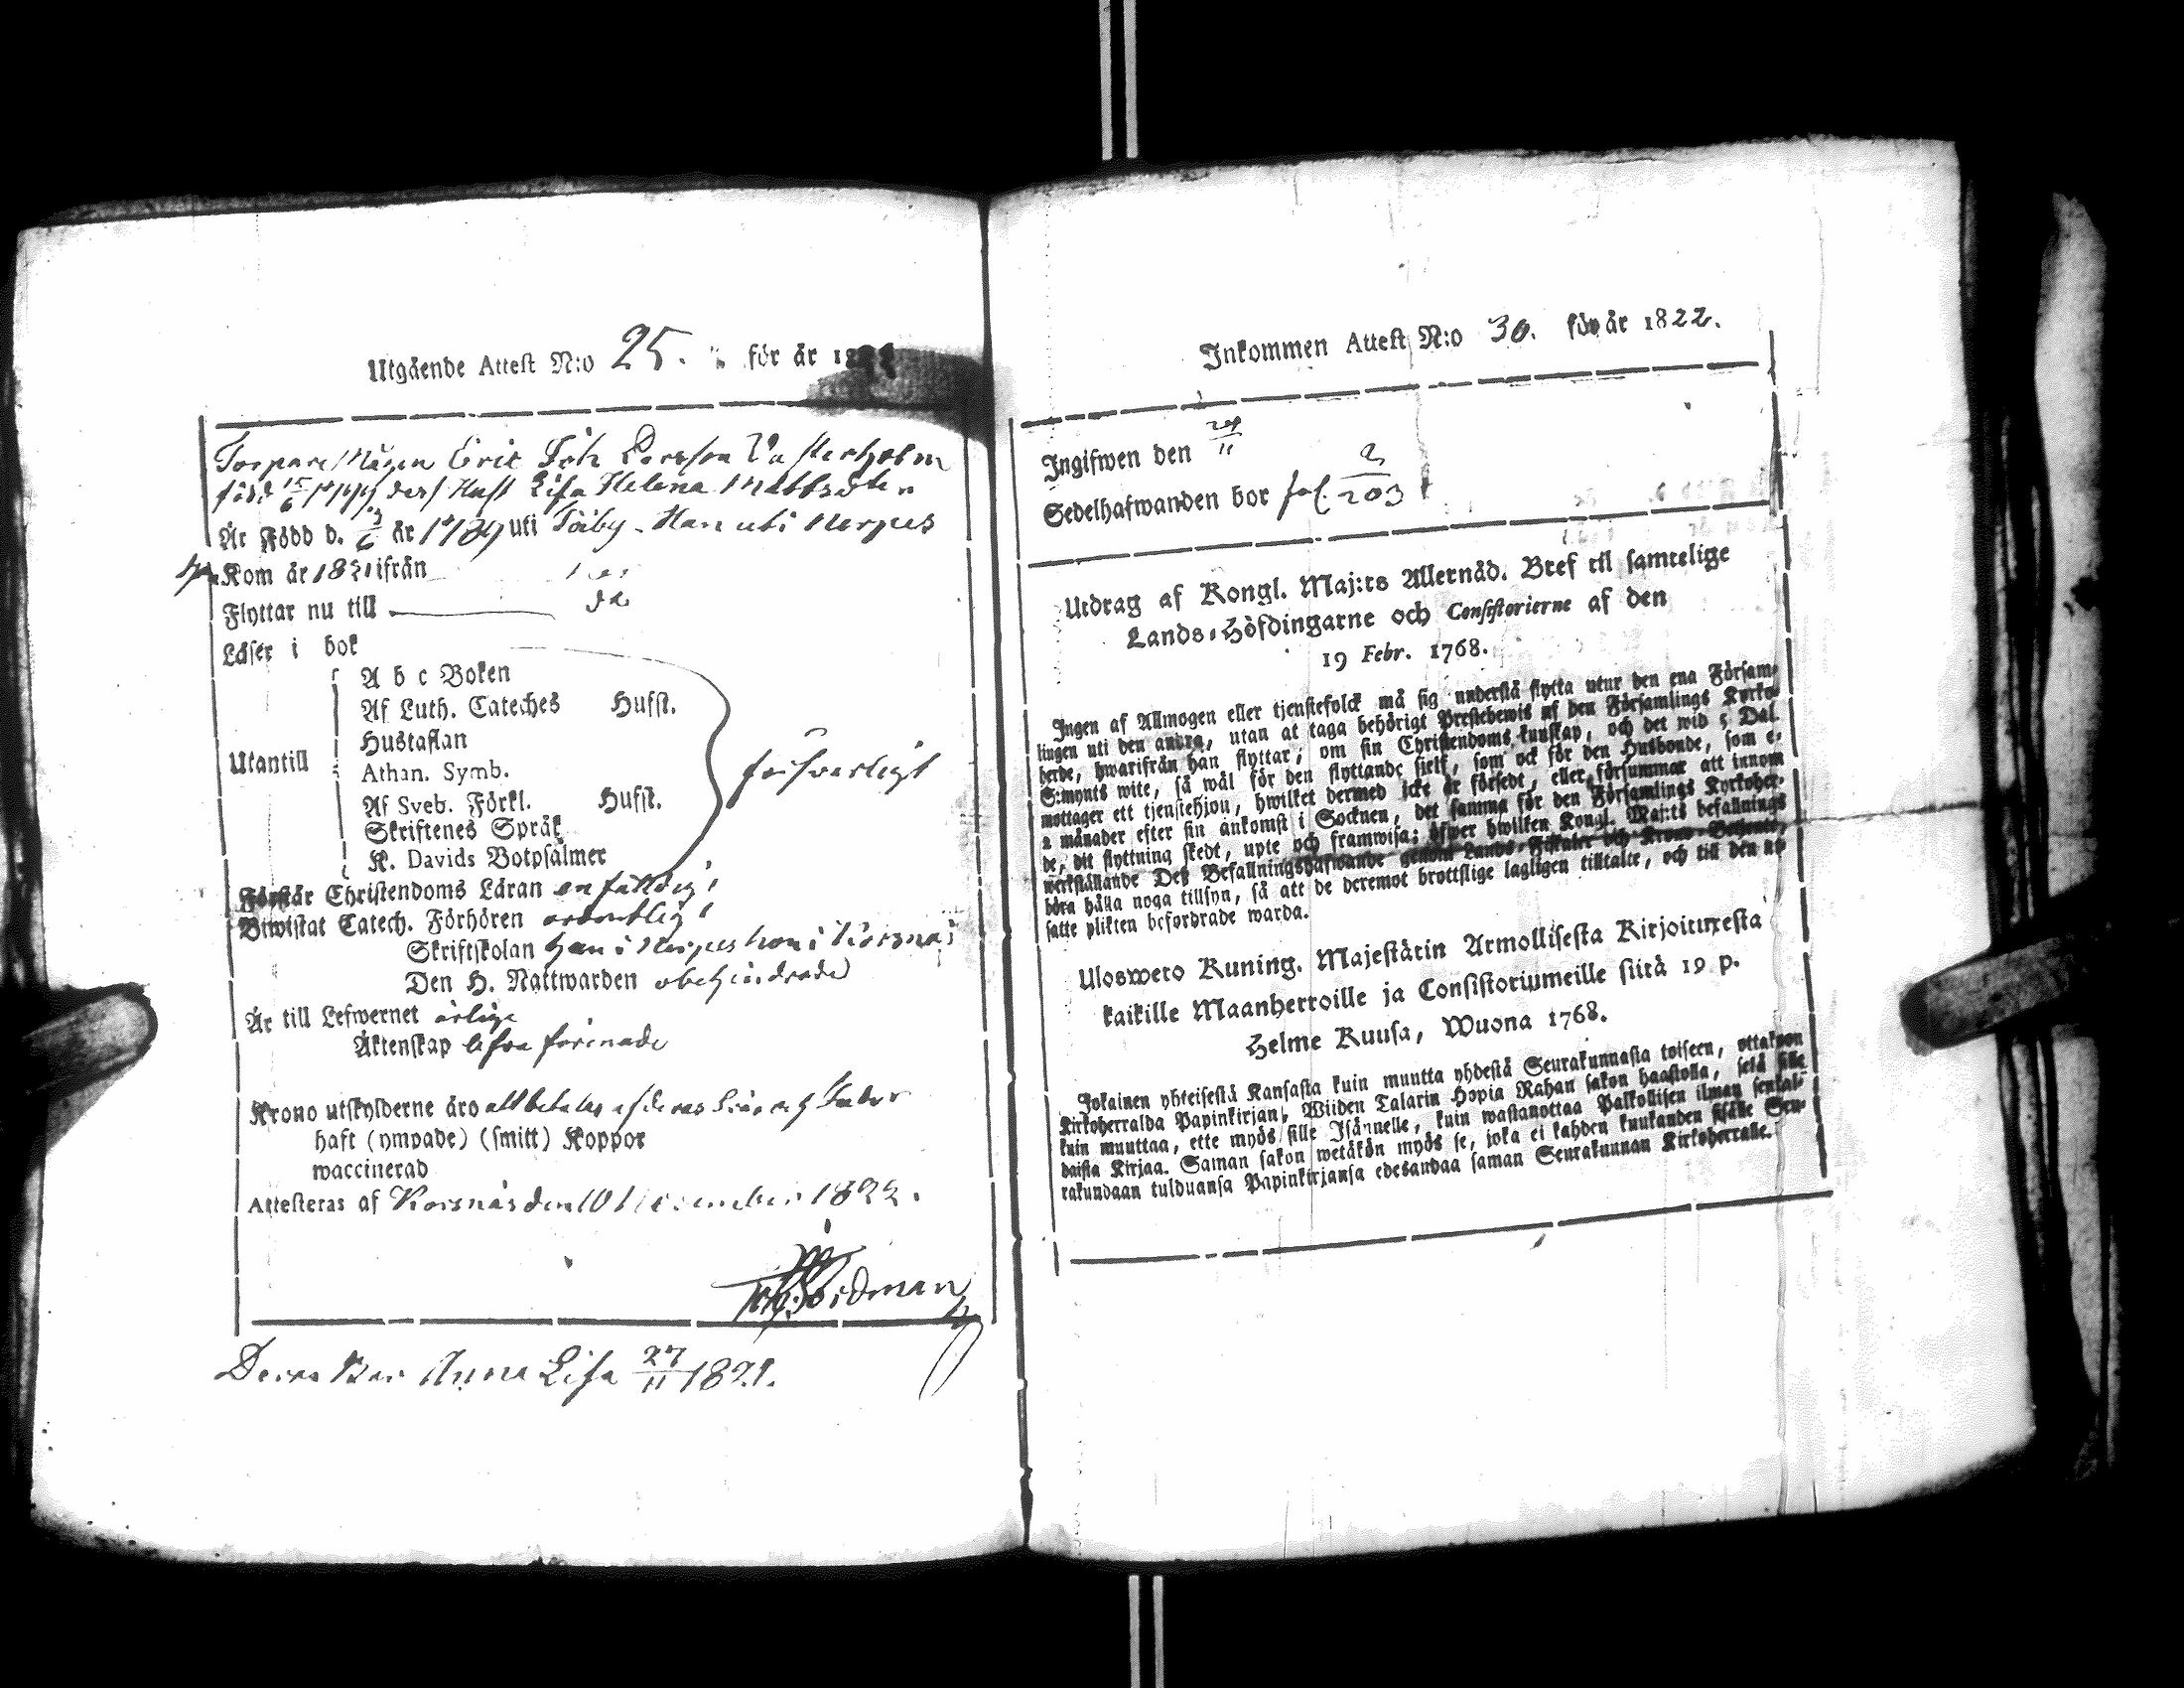 Utgående Attest N:o 25. för år
Torpare Mågen Eric Joh Persson Västerholm
född 15/6 dess Hust Lisa Helena Mattsdr
Är Född d. 3/6 år 1789 uti Töiby. Han uti Nerpes
Kom år 1821 ifrån
Flyttar nu till
Läser i bok
A b c Boken
Af Luth. Cateches Husft.
Hustaflan
Utantill
Athan. Symb.
Af Sveb. Förkl. Husft.
försvarligt
Skriftenes Språk
K. Davids Botpsalmer
Förstår Christendoms Läran enfaldigt
Biwistat Catech. Förhören ordentligt
Skriftskolan han i Nerpes hon i Korsnäs
Den H. Nattwarden obehindrade
Är till Lefwernet ärlige
Äktenskap lefva förenade
Krono utskylderne äro allt betalas af deras Svärfader
haft (ympade) (smitt) Koppor
waccinerad
Attesteras af Korsnäs den 10 November 1822.
Widman
Deras Barn Anna Lisa 27/11 1821.
Inkommen Attest N:o 30. för år 1822.
Ingifwen den 24/11
Sedelhafwanden bor fol. 2/203
Utdrag af Kongl. Maj:ts Allernåd. Bref til samtelige
Lands-Höfdingarne och Consistorierne af den
19 Febr. 1768.
Ingen af Allmogen eller tjenstefolck må sig understå flytta utur den ena Försam-
lingen uti den andra, utan at taga behörigt Prestebewis af den Församlings Kyrko-
herde, hwarifrån han flyttar, om sin Christendoms kunskap, och det wid 5 Dal.
S:mynts wite, så wäl för den flyttande sielf, som ock för den Husbonde, som e-
mottager ett tjenstehjon, hwilket dermed icke är försedt, eller försummar att innom
2 månader efter sin ankomst i Socknen, det samma för den Församlings Kyrkoher-
de, dit flyttning skedt, upte och framwisa; öfwer hwilken Kongl. Maj:ts befallnings
werkställande Deß Befallningshafwande genom Lands-Fiskaler och Krono-Betjente,
böra hålla noga tillsyn, så att de deremot brottslige lagligen tilltalte, och till den ut-
satte plikten befordrade warda.
Ulosweto Kuning. Majestätin Armollisesta Kirjoituxesta
kaikille Maanherroille ja Consistoriumeille siitä 19 p.
Helme Kuusa, Wuona 1768.
Jokainen yhteisestä Kansasta kuin muutta yhdestä Seurakunnasta toiseen, ottakoon
Kirkoherralda Papinkirjan, Wiiden Talarin Hopia Rahan sakon haastolla, sekä sille
kuin muuttaa, ette myös sille Isännelle, kuin wastanottaa Palkollisen ilman senkal-
daista Kirjaa. Saman sakon wetäkön myös se, joka ei kahden kuukauden sisälle Seu-
rakundaan tulduansa Papinkirjansa edesandaa saman Seurakunnan Kirkoherralle.